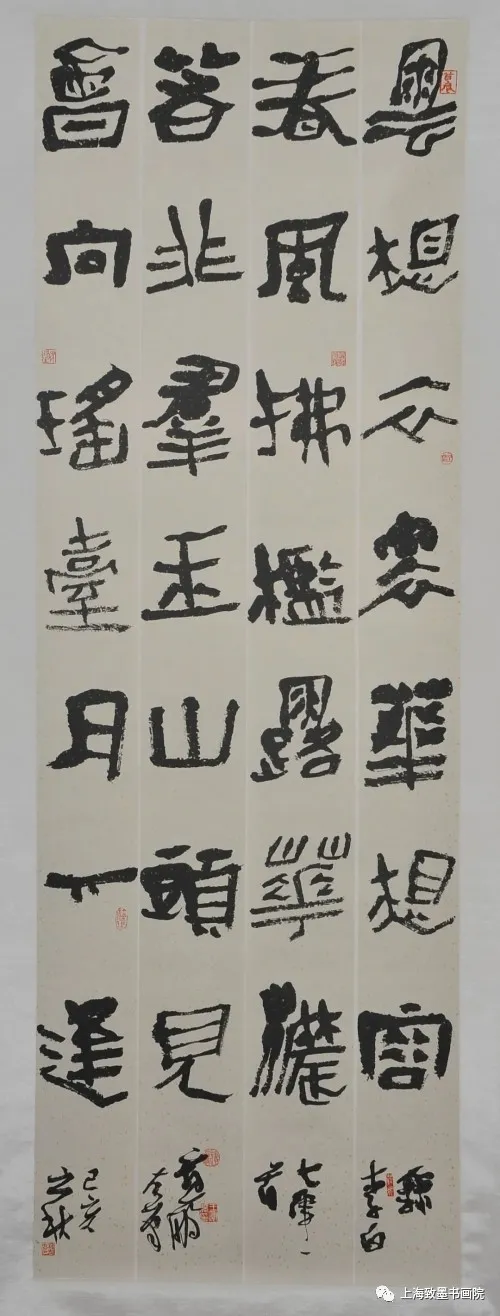 雲想衣裳華想容
錄李白
春風拂檻露華濃
七律一首
若非羣玉山頭見
會向瑤臺月下逢
己亥之秋
上海致墨书画院